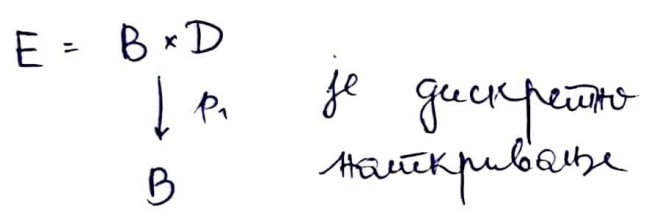 E = B × D
↓ p₁ је дискретно
B наткривање